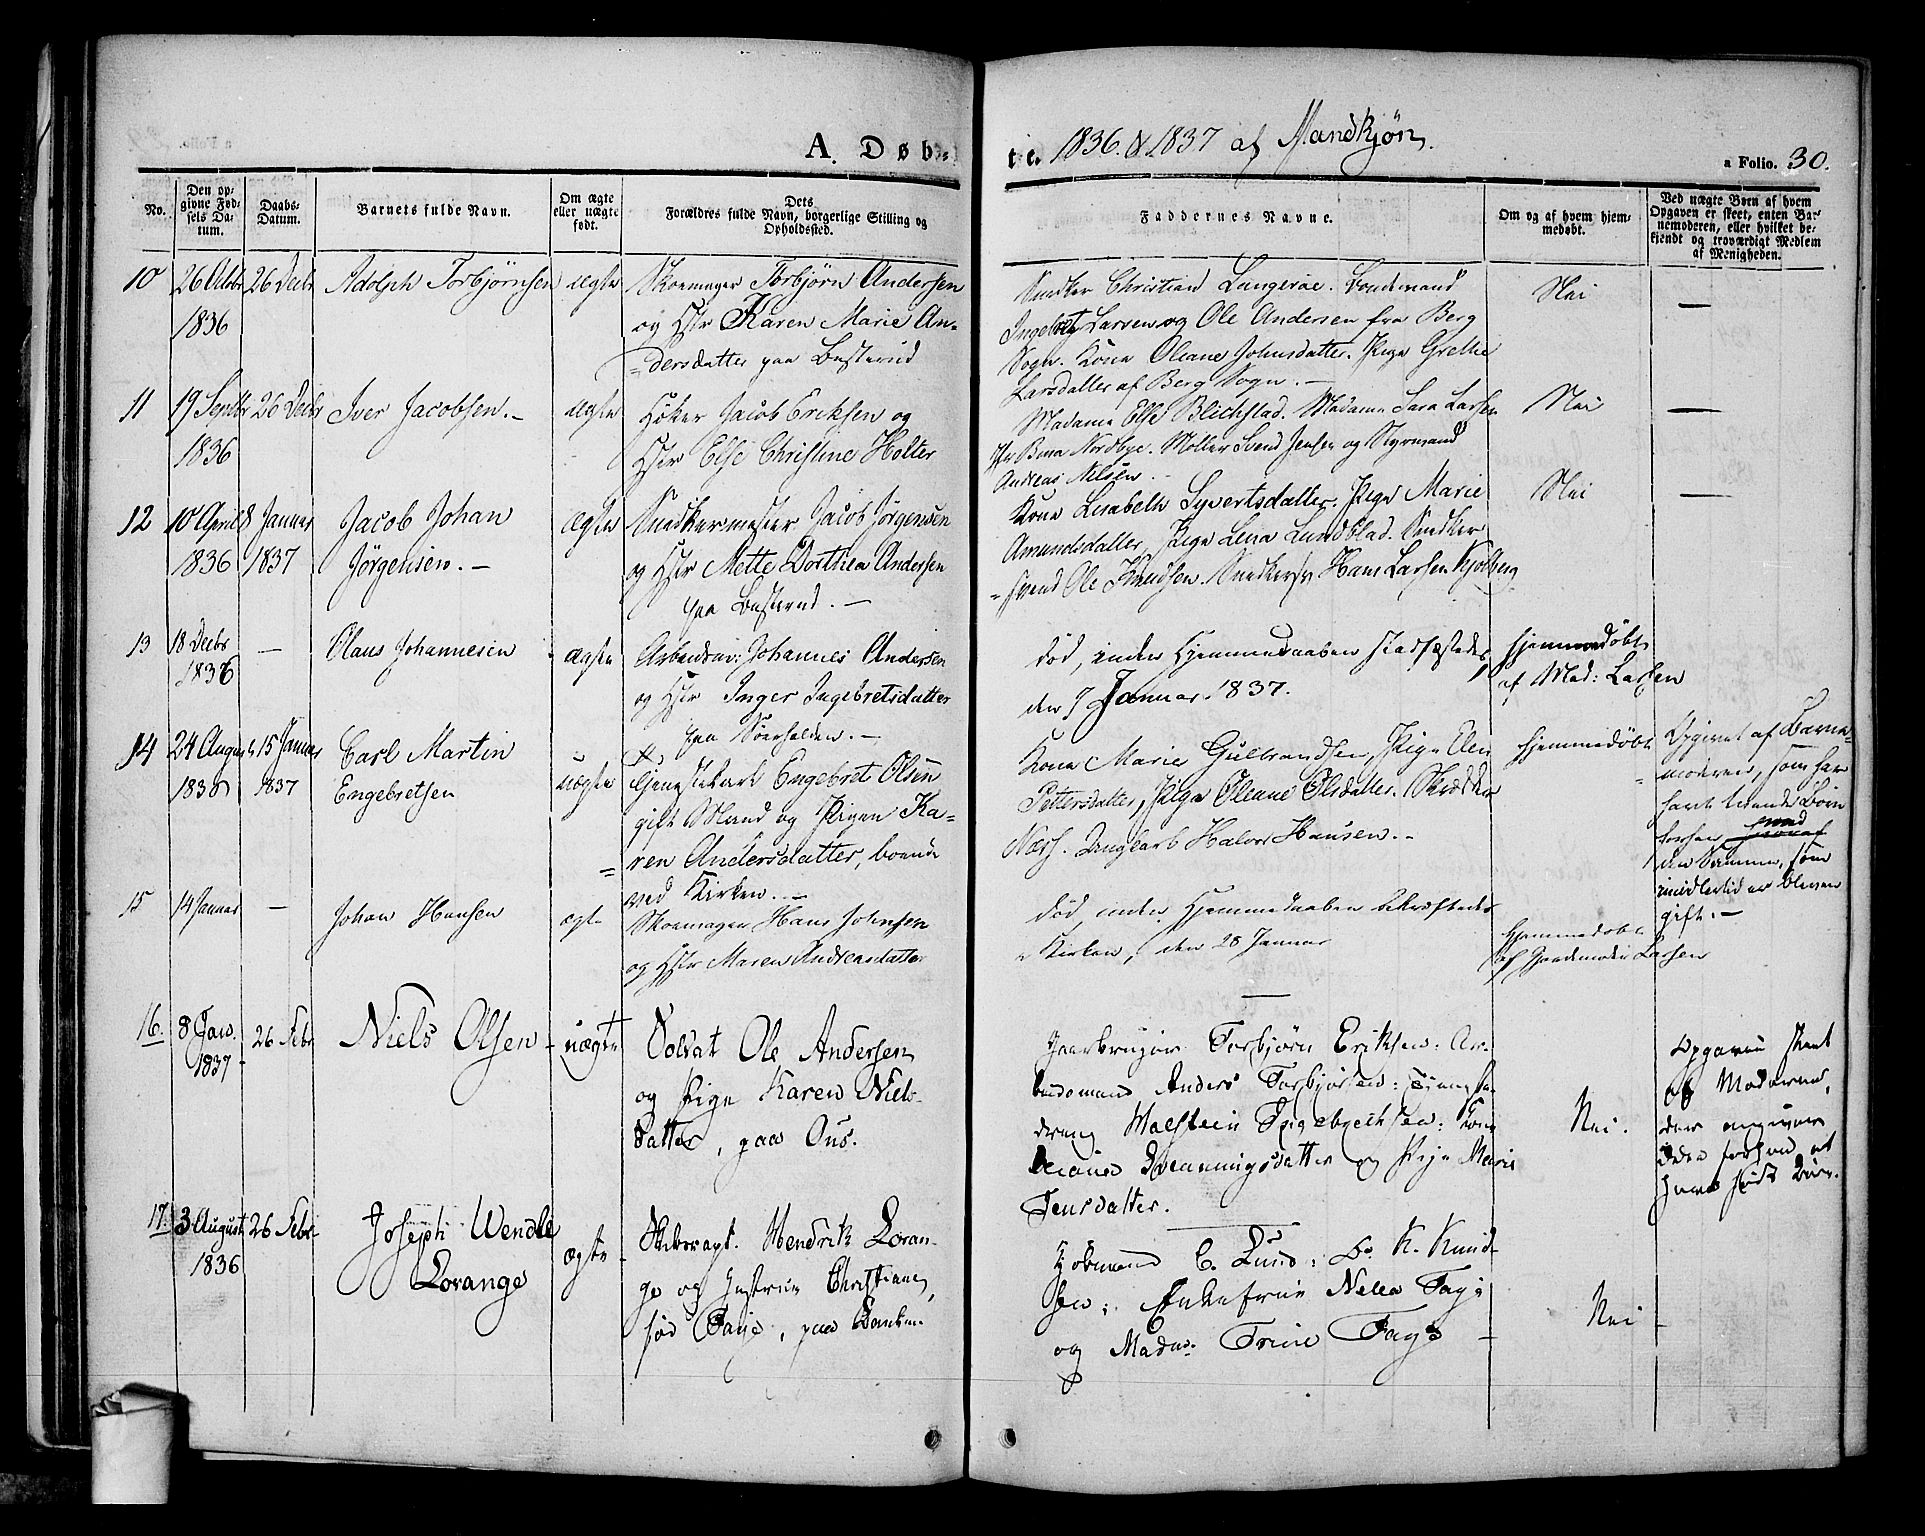 A. Døbte. 1836. & 1837 af Mandkjøn.
a Folio. 30.
No.
Den opgivne Fødsels Datum.
Daabs-Datum.
Barnets fulde Navn.
Om ægte eller uægte født.
Dets Forældres fulde Navn, borgerlige Stilling og Opholdssted.
Faddernes Navne.
Om og af hvem hjemmedøbt.
Ved uægte Børn af hvem Opgaven er skeet, enten Barnemoderen, eller hvilket bekjendt og troværdigt Medlem af Menigheden.
10 26 Octbr 26 Decbr Adolph Torbjørnsen ægte Skoemager Torbjørn Andersen
1836 og Hstr Karen Marie An-
dersdatter paa Busterud
Snedker Christian Langeroe. Bondemand
Ingebret Larsen og Ole Andersen fra Berg
Sogn. Kone Oleane Johnsdatter. Pige Grethe
Larsdatter af Berg Sogn. —
Nei —
11 19 Septbr 26 Decbr Iver Jacobsen. — ægte Høker Jacob Eriksen og
1836 Hstr Else Christine Holter
Madame Else Blichstad. Madame Sara Larsen
Jfr Bina Nordbye. Møller Svend Jensen og Styrmand
Andreas Nilsen. —
Nei —
12 10 April 8 Januar Jacob Johan ægte Snedkermester Jacob Jørgensen
1836 1837 Jørgensen. — og Hstr Mette Dorthea Andersen
paa Busterud. —
Kone Lisabeth Syvertsdatter. Pige Marie
Amundsdatter, Pige Lena Lundblad. Snedker
svend Ole Knudsen. Snedkersv Hans Larsen Kjølberg
Nei —
13 18 Decbr — Olaus Johannesen ægte Arbeidsm: Johannes Andersen
1836 og Hstr Inger Ingebretsdatter
paa Sørhalden. —
død, inden Hjemmedaaben stadfæstedes
den 7 Januar 1837.
Hjemmedøbt
af Mad: Larsen
14 24 August 15 Januar Carl Martin uægte Tjenestekarl Engebret Olsen
1836 1837 Engebretsen gift Mand og Pigen Ka-
ren Andersdatter, boende
ved Kirken. —
Kone Marie Gulbrandsen, Pige Elen
Pettersdatter, Pige Oleane Olsdatter. Skrædder
Næss. Ungkarl Halvor Hansen. —
Hjemmedøbt
Opgivet af Barne-
moderen, som har
havt tvende Børn
forhen med
den Samme, som
imidlertid er bleven
gift. —
15 14 Januar — Johan Hansen ægte Skoemager Hans Johnsen
og Hstr Maren Andreasdatter
død, inden Hjemmedaaben bekræftedes
i Kirken, den 28 Januar
Hjemmedøbt
af Jordemoder Larsen
16. 8 Jan. 26 Febr Niels Olsen uægte Soldat Ole Andersen
1837 og Pige Karen Niels-
datter, paa Ous.
Gaardbruger Torbjørn Eriksen: Ar-
beidsmand Anders Torbjørsen: Tjeneste-
dreng Halstein Ingebrethsen: Kone
Henningsdatter og Pige Marie
Jensdatter.
Nei.
Opgaven skeet
af Moderen,
der angiver
dette forhen at
have født Børn.
17. 3 August 26 Febr Joseph Wendle ægte Skibscapt. Hendrik Loran-
1836 Lorange ge og Hustrue Christiane,
fød Faye, paa Banken
Kjøbmand C. Lund: Do K. Knud-
sen: Enkefrue Nella Faye
og Madme Trine Faye —
Nei —